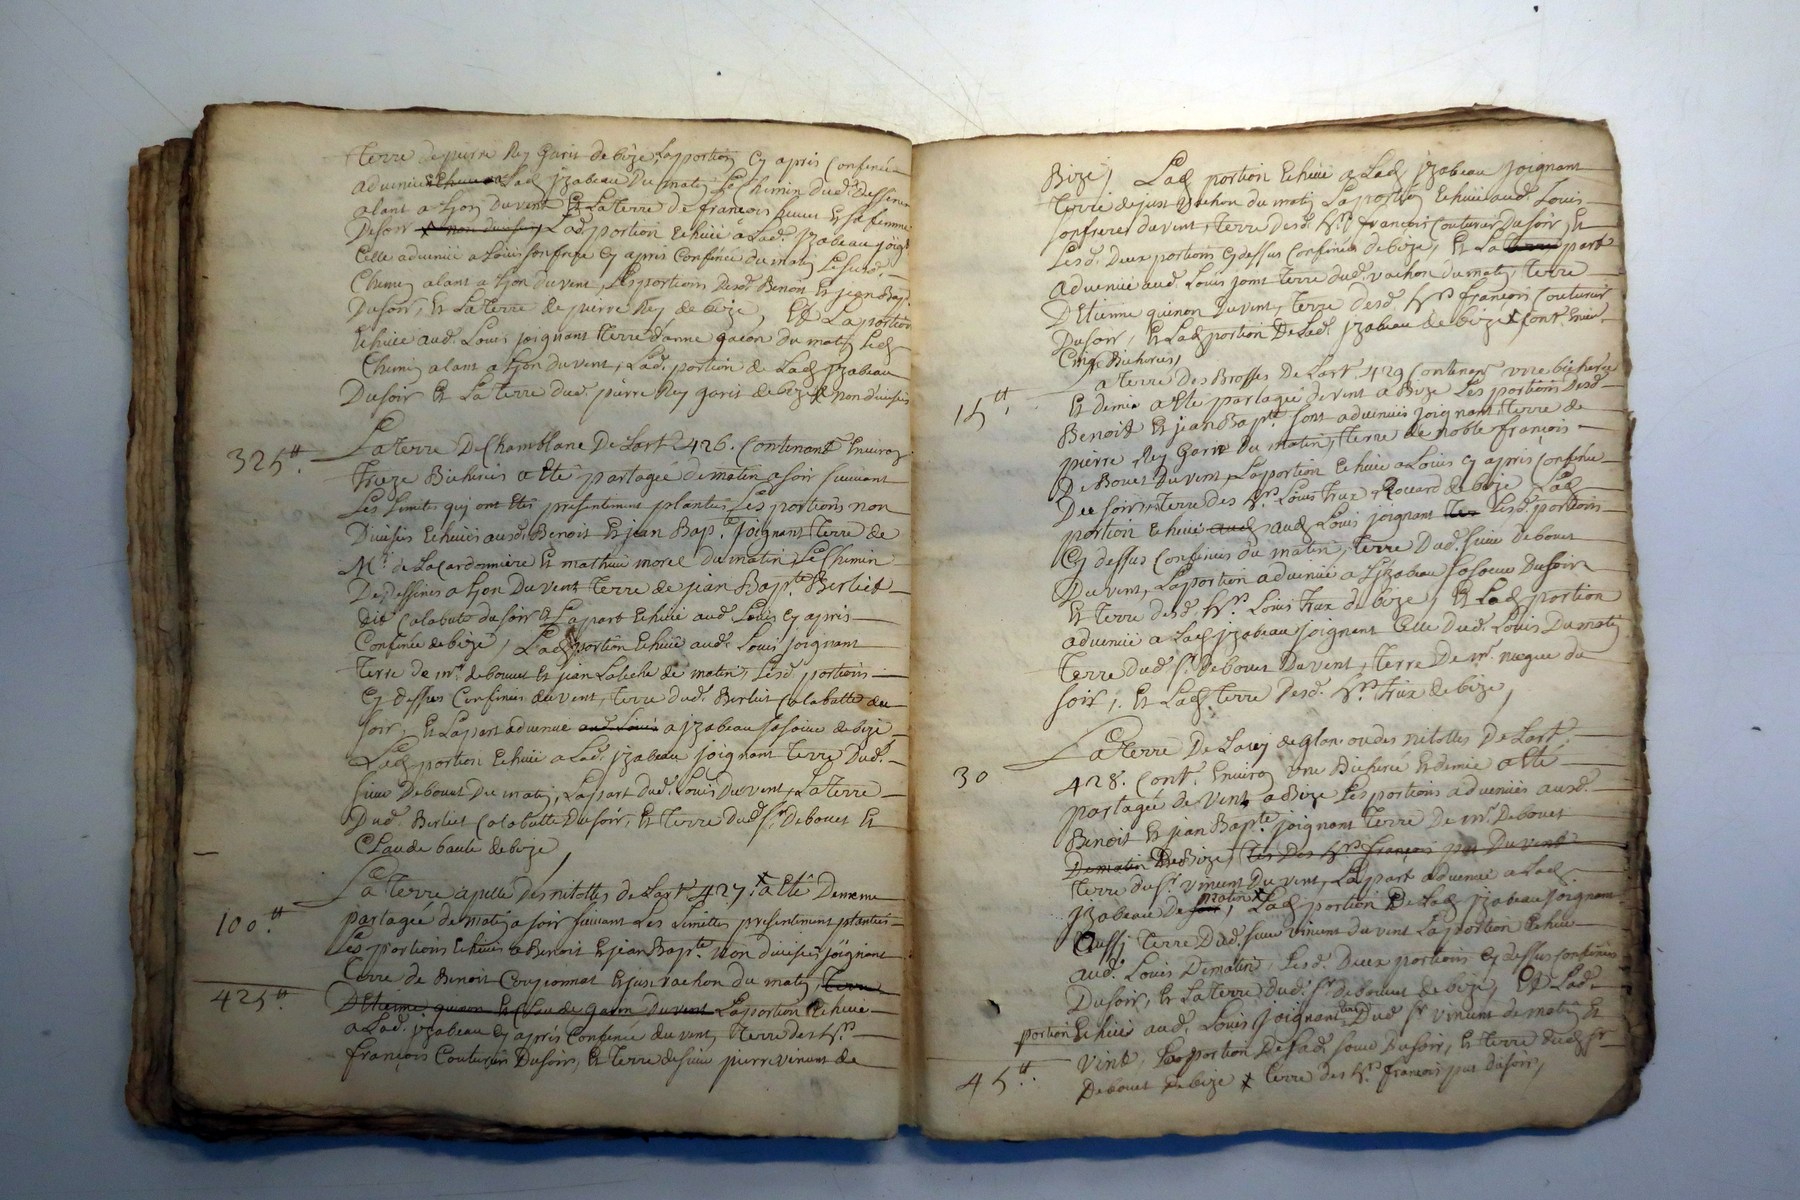 terre de pierre Rey Garit de bize, la portion Cy apres Confinée
advenue a Lad. yzabeau Du matin Le Chemin dud. Dessines
alant a Lyon Du vent Et La Terre de françois et sa femme
Du soir Lad. portion Echuée a Lad. yzabeau joig.t
Celle advenüe a Louis son frere Cy apres Confinée du matin Le susd.
Chemin alant a Lyon du vent, Les portions Desd. Benoit Et jean Bap.
Du soir, Et La Terre de pierre Rey de bize, Et La portion
Echuée aud. Louis joignant terre danne gacon du matin Led.
Chemin alant a Lyon du vent, Lad. portion de Lad. yzabeau
Du soir Et La Terre dud. pierre Rey garit de bize non divisées
325.tt
La Terre De Chamblane De Lart. 426. Contenant Environ
Treze Bicherées a Eté partagée de matin a soir suivant
Les Limites qui ont Eté presentement plantées Les portions non
Divisées Echuées ausd. Benoit Et jean Bap.te joignant Terre de
M.r de La Cardonniere Et mathieu morel du matin, Le Chemin
De Dessines a Lyon Du vent Terre de jean Bap.te Berliet
dit Calabute du soir Et La part Echuée aud. Louis Cy apres
Confinée de bize, Lad. portion Echuée aud. Louis joignant
terre de m.r de bouet Et jean Labiche de matin, Lesd. portions
Cy dessus Confinées du vent, terre dud. Berliet Calabutte du
soir, Et La part advenue aud. Louis a yzabeau sa soeur de bize
Lad. portion Echuée a Lad. yzabeau joignant terre Dud.
sieur Debouet Du matin, La part dud. Louis Du vent, La terre
Dud. Berliet Calabutte Du soir, Et terre dud. s.r Debouet Et
Claude baule de bize,
La Terre apellée des nitolles de Lart. 427. a Eté De meme
100.tt
partagée de matin a soir suivant Les Limittes presentement plantées
Les portions Echuées a Benoit Et jean Bap.te non divisées joignant
terre de Benoit Coujonnat Et just vachon du matin, terre
425.tt
D'Etienne guinon Et Claude Gacon Du vent La portion Echuée
a Lad. yzabeau Cy apres Confinée du vent, terre des h.rs
françois Couturier Du soir, Et terre de sieur pierre vincent de
Bize, Lad. portion Echuée a Lad. yzabeau joignant
terre de just vachon du matin La portion Echuée aud. Louis
son frere du vent, terre desd. h.rs francois Couturier Du soir, Et
Lesd. Deux portions Cy dessus Confinées de bize, Et La terre part
advenüe aud. Louis joint terre dud. vachon du matin, terre
D'Etienne guinon Du vent, terre desd. h.rs françois Couturier
Du soir, Et Lad. portion De Lad. yzabeau de bize Cont. Envir.
Cinq Bicherées,
a terre Des Brosses De Lart. 429 Contenant une bicherée
15.tt
Et demie a Eté partagée de vent a Bize Les portions desd.
Benoit Et jean Bap.te sont advenues joignant terre de
pierre Rey Garit Du matin, terre de noble françois
De Bouet Du vent, La portion Echuée a Louis Cy apres Confinée
Du soir, terre des h.rs Louis Trux Rouard de bize Lad.
portion Echuée aud. aud. Louis joignant ter Lesd. portions
Cy dessus Confinées du matin, terre Dud. sieur de bouet
Du vent, La portion advenüe a Lyzabeau sa soeur Du soir
Et terre desd. h.rs Louis Trux de bize, Et Lad. portion
advenüe a Lad. yzabeau joignant Celle Dud. Louis Du matin
terre dud. s.r Debouet Du vent, terre De m.r du
soir, Et Lad. terre desd. h.rs Trux de bize,
La Terre De Larej de Glan ou des nitolles De Lart.
30
428. Cont. Environ Une Bicherée Et demie a Eté
partagée de vent a Bize Les portions advenües ausd.
Benoit Et jean Bap.te joignant Terre De m.r Debouet
De matin De Bize, ter Des h.rs françois Du vent
terre du s.r vincent Du vent, La part advenüe a Lad.
yzabeau De soir matin, Lad. portion De Lad. yzabeau joignant
aussj terre Dud. sieur vincent du vent La portion Echuée
aud. Louis De matin, Lesd. Deux portions Cy dessus confinées
Du soir, Et La terre dud. s.r de bouet de bize, Et Lad.
portion Echuée aud. Louis joignant Dud. s.r vincent de matin Et
vent, La portion De Lad. soeur Du soir, Et terre dud. s.r
45.tt
Debouet de bize terre des h.rs francois du soir,